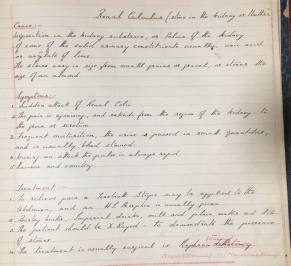 Renal Calculus (stone in the kidney or Ureter
Cause:-
Deposition in the kidney substance, or Calices of the kidney
of some of the solid urinary constituents usually, uric acid
or oxalate of lime.
The stones vary in size from small grains or gravel, or stones the
size of an almond.
Symptoms:-
1. Sudden attack of Renal Colic
2. The pain is agonising, and extends from the region of the kidney to
the penis or scrotum.
3. Frequent micturition, the urine is passed in small quantities,
and is usually blood stained.
4. During an attack the pulse is always rapid.
5. and vomiting.
Treatment:-
1. To relieve pain a Turpentine Stupe may be applied to the
Abdomen, and an H.I. Morphia is usually given
2. Barley water, Imperial drinks, milk and
3. The patient should be X. Rayed - to demonstrate the presence
of stones.
4. The treatment is usually surgical ie.